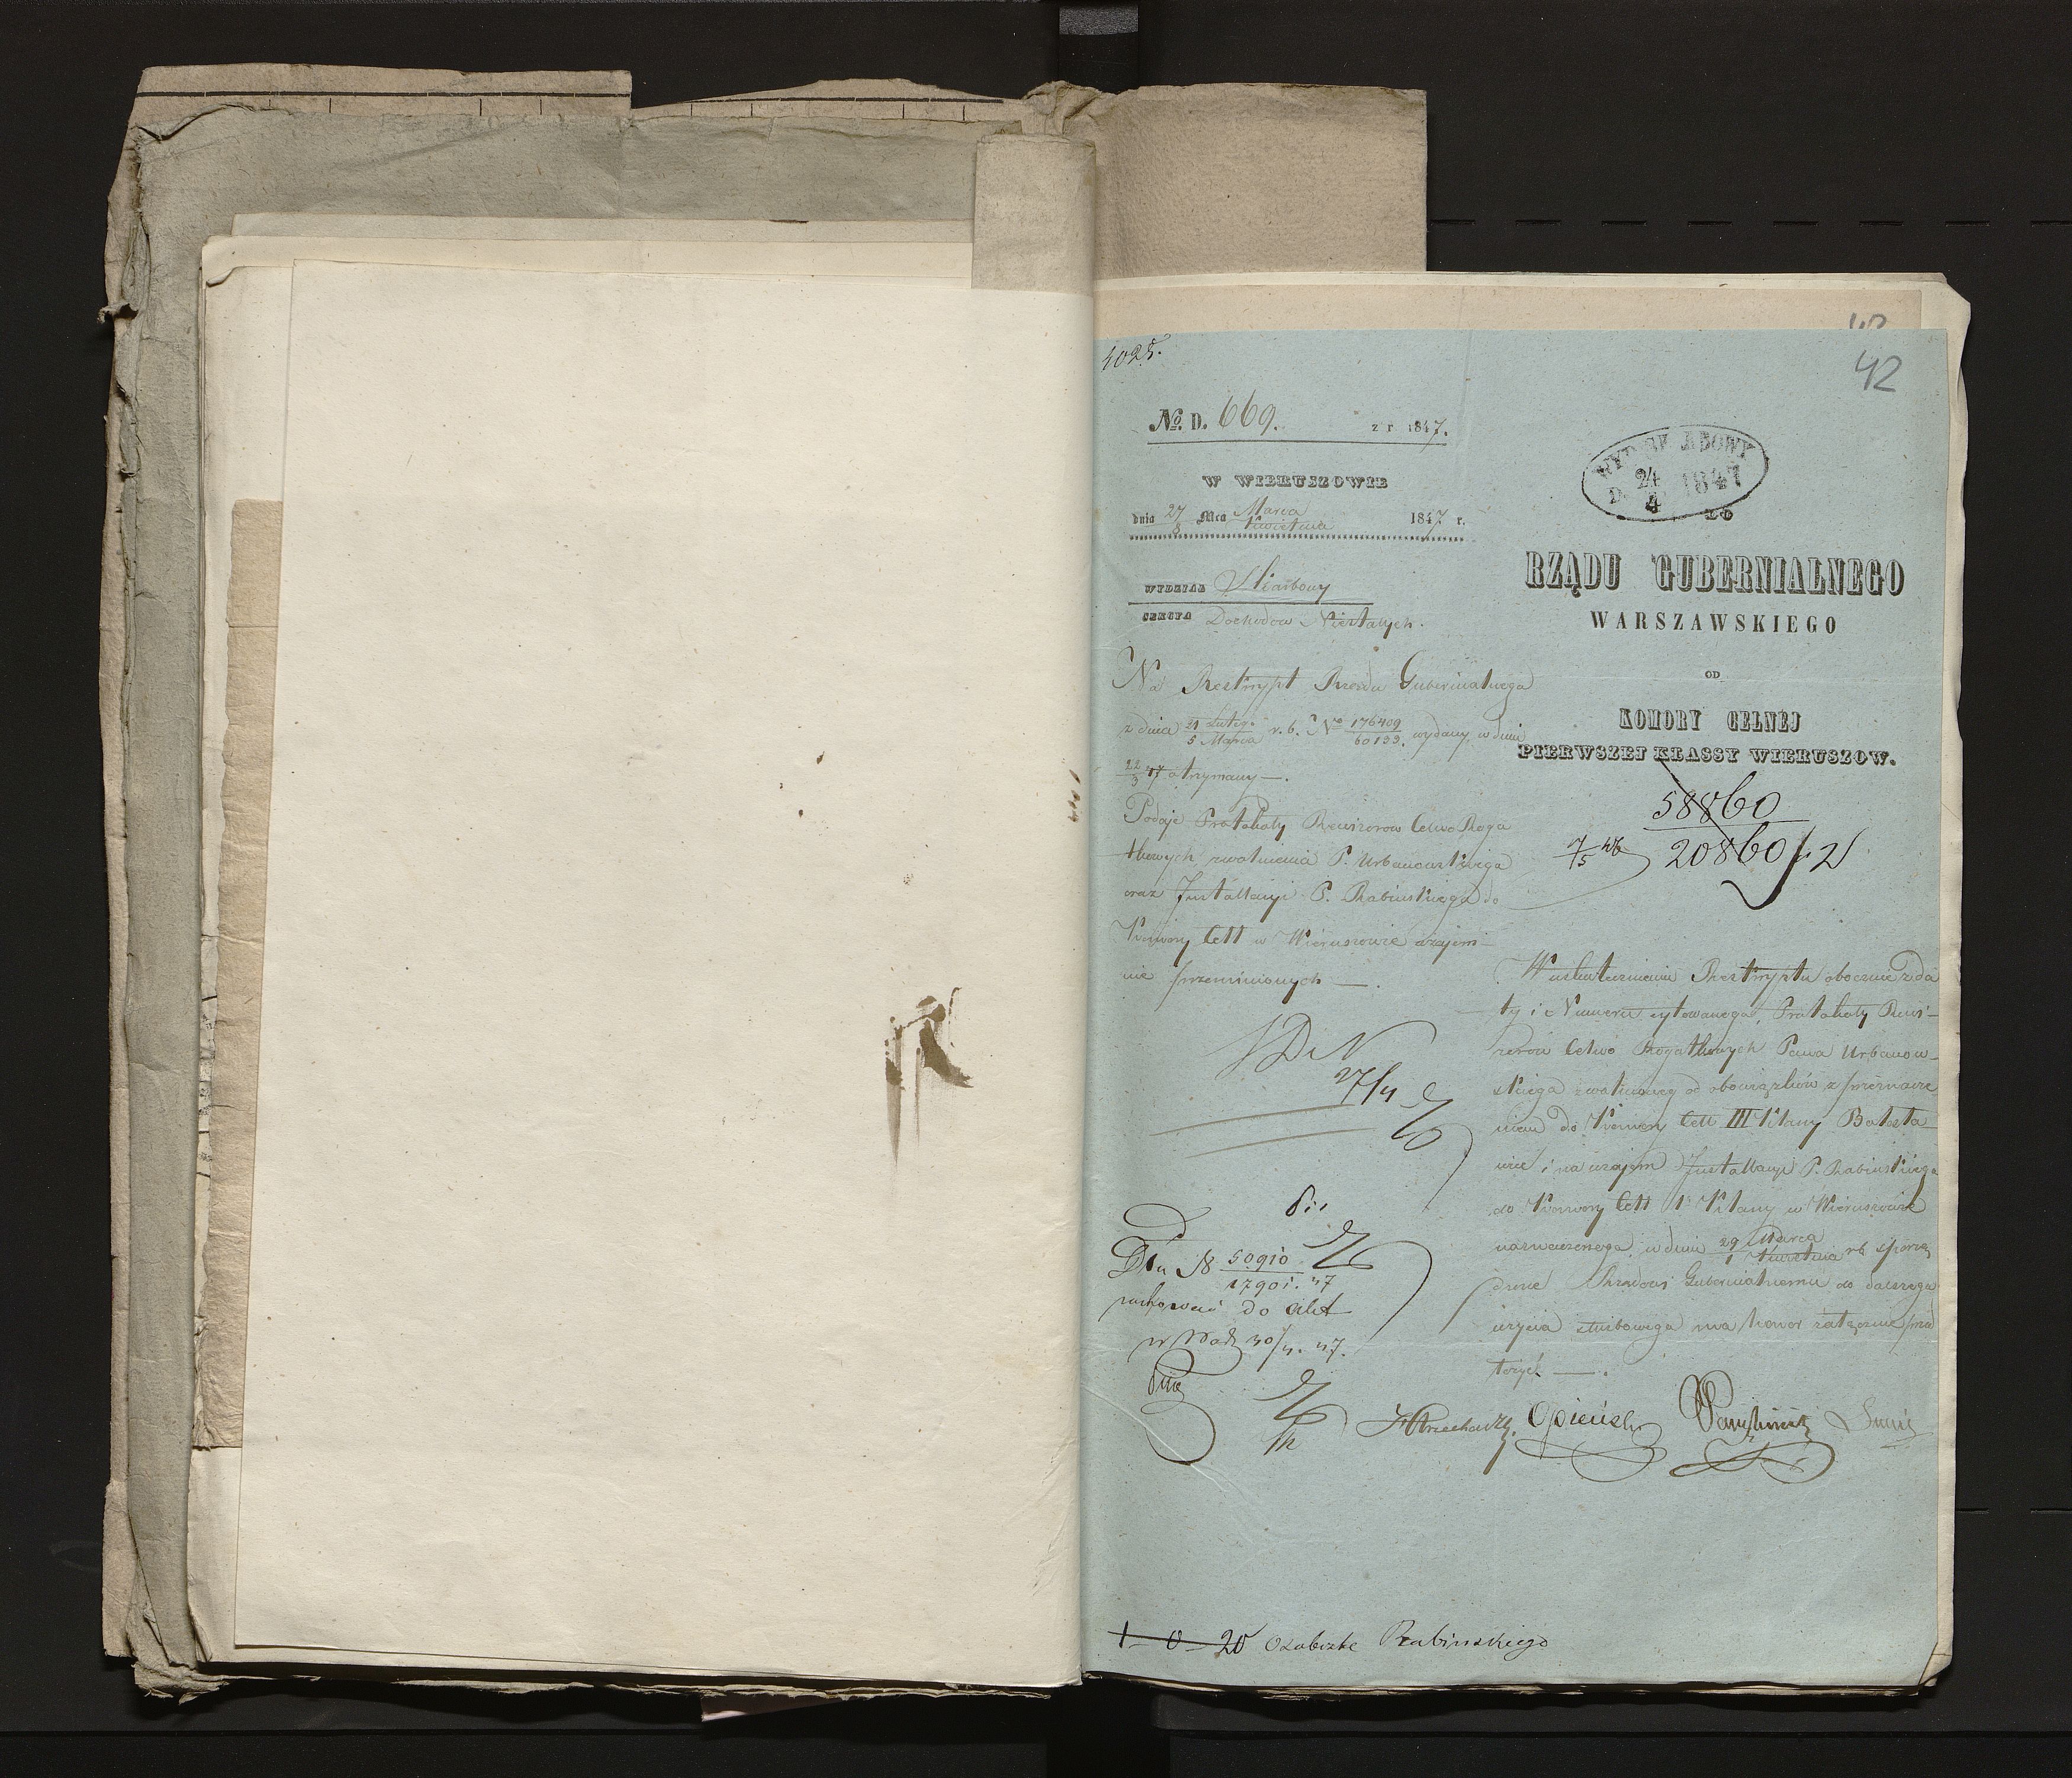 42
No. D. 669. z r. 1847.
W WIERUSZOWIE
dnia 27/8 Mca Marca/Kwietnia 1847 r.
WYDZIAŁ Skarbowy
SEKCYA Dochodów Niestałych.
Na Reskrypt Rządu Gubernialnego
z dnia 21 Lutego/5 Marca r. b. No 176409/60133. wydany, w dniu
22/3 47 otrzymany —.
Podaje Protokoły Rewizorów Celno Roga
tkowych, zwolnienia P. Urbanowskiego
oraz Installacyi P. Rabinskiego do
Komory Cell w Wieruszowie wzajem
nie przemienionych —.
27/4
Dla N 50910/17901. 47
zachować do akt
30/4. 47.
24/4 1847
DO
RZĄDU GUBERNIALNEGO
WARSZAWSKIEGO
OD
KOMORY CELNÉJ
PIERWSZEJ KLASSY WIERUSZOW.
58860
20860
W uskutecznieniu Reskryptu obocznie z da
ty i Numeru cytowanego, Protokoły Rewi-
zorów Celno Rogatkowych Pana Urbanow-
skiego zwolnionego od obowiązków z przeznacze
niem do Komory Cell III Klassy Bolesła
wiec i na wzajem Installacyi P. Rabinskiego
do Komory Cell I Klassy w Wieruszowie
naznaczonego, w dniu 29 Marca/1 Kwietnia rb sporzą
dzone Rządowi Gubernialnemu do dalszego
użycia służbowego ma honor załącznie przed
łożyć —.
Opieński
20 Osobiste Rabinskiego